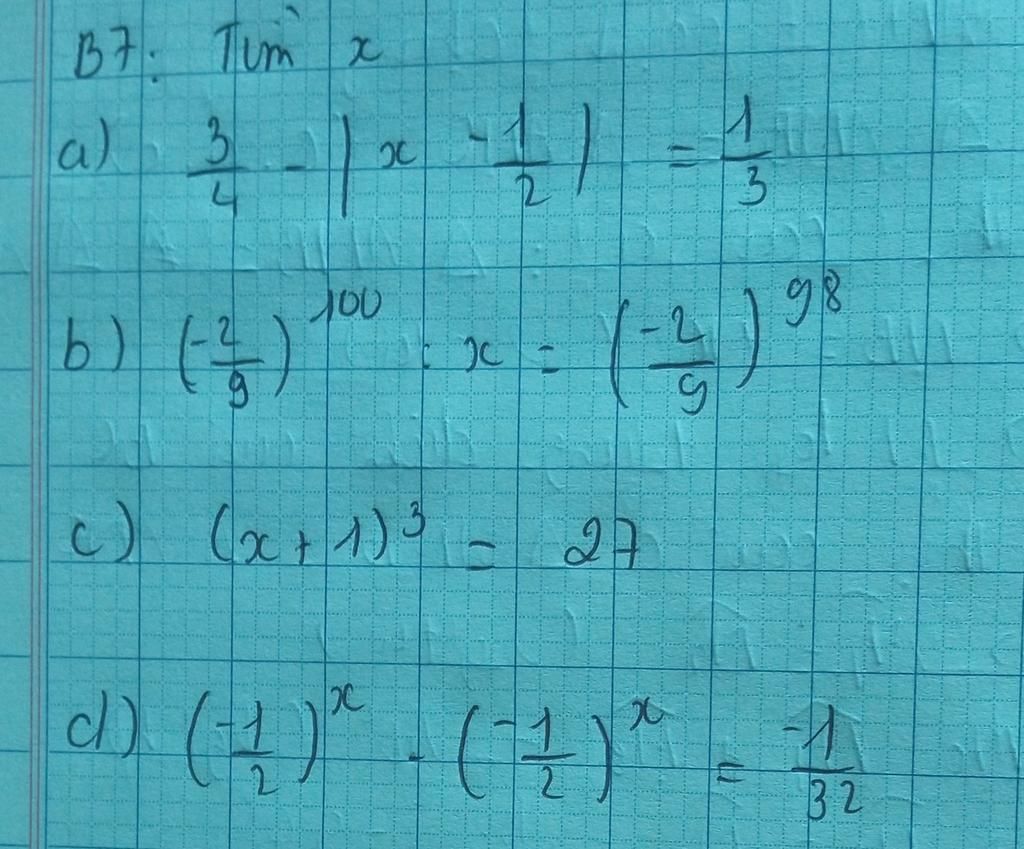 B7: Tìm x
a) 3/4 - |x - 1/2| = 1/3
b) (-2/9)^100 : x = (-2/9)^98
c) (x + 1)^3 = 27
d) (-1/2)^x . (-1/2)^x = -1/32